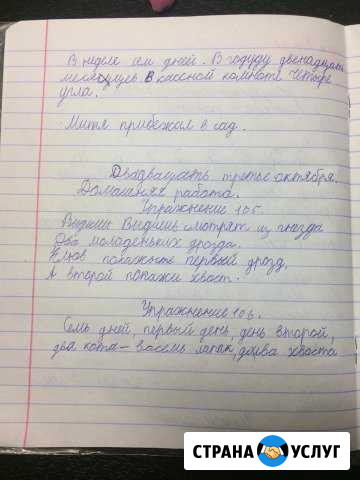 В неделе сем дней. В годуду двенадцать
месяоцев. В кассной комноте четыре
угла.
Митя прибежал в сад.
Двадвацать третье октября.
Домашняя работа.
Упражнение 105.
Видишь Видишь смотрят из гнезда
Два молоденьких дрозда.
Клюв покажыте первый дрозд,
А второй покажи хвост.
Упражнение 106.
Семь дней, первый день, день второй,
два кота – восемь лапык, два хваста
СТРАНА УСЛУГ